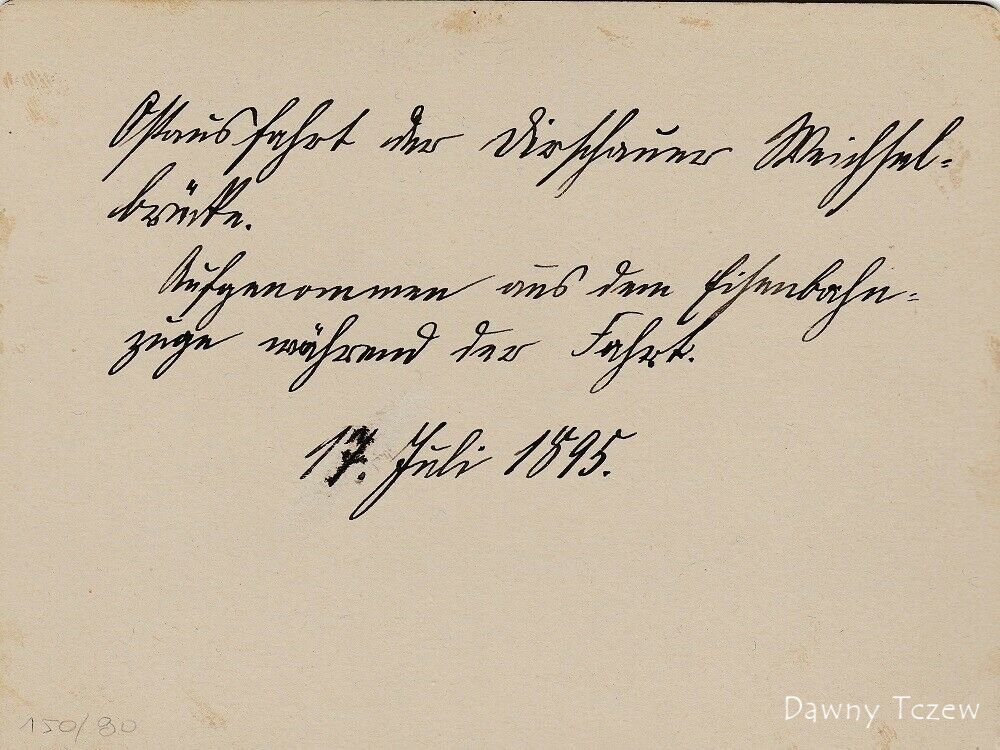 Ostausfahrt der Dirschauer Weichsel-
brücke.
Aufgenommen aus dem Eisenbahn-
zuge während der Fahrt.
17. Juli 1895.
150/80
Dawny Tczew